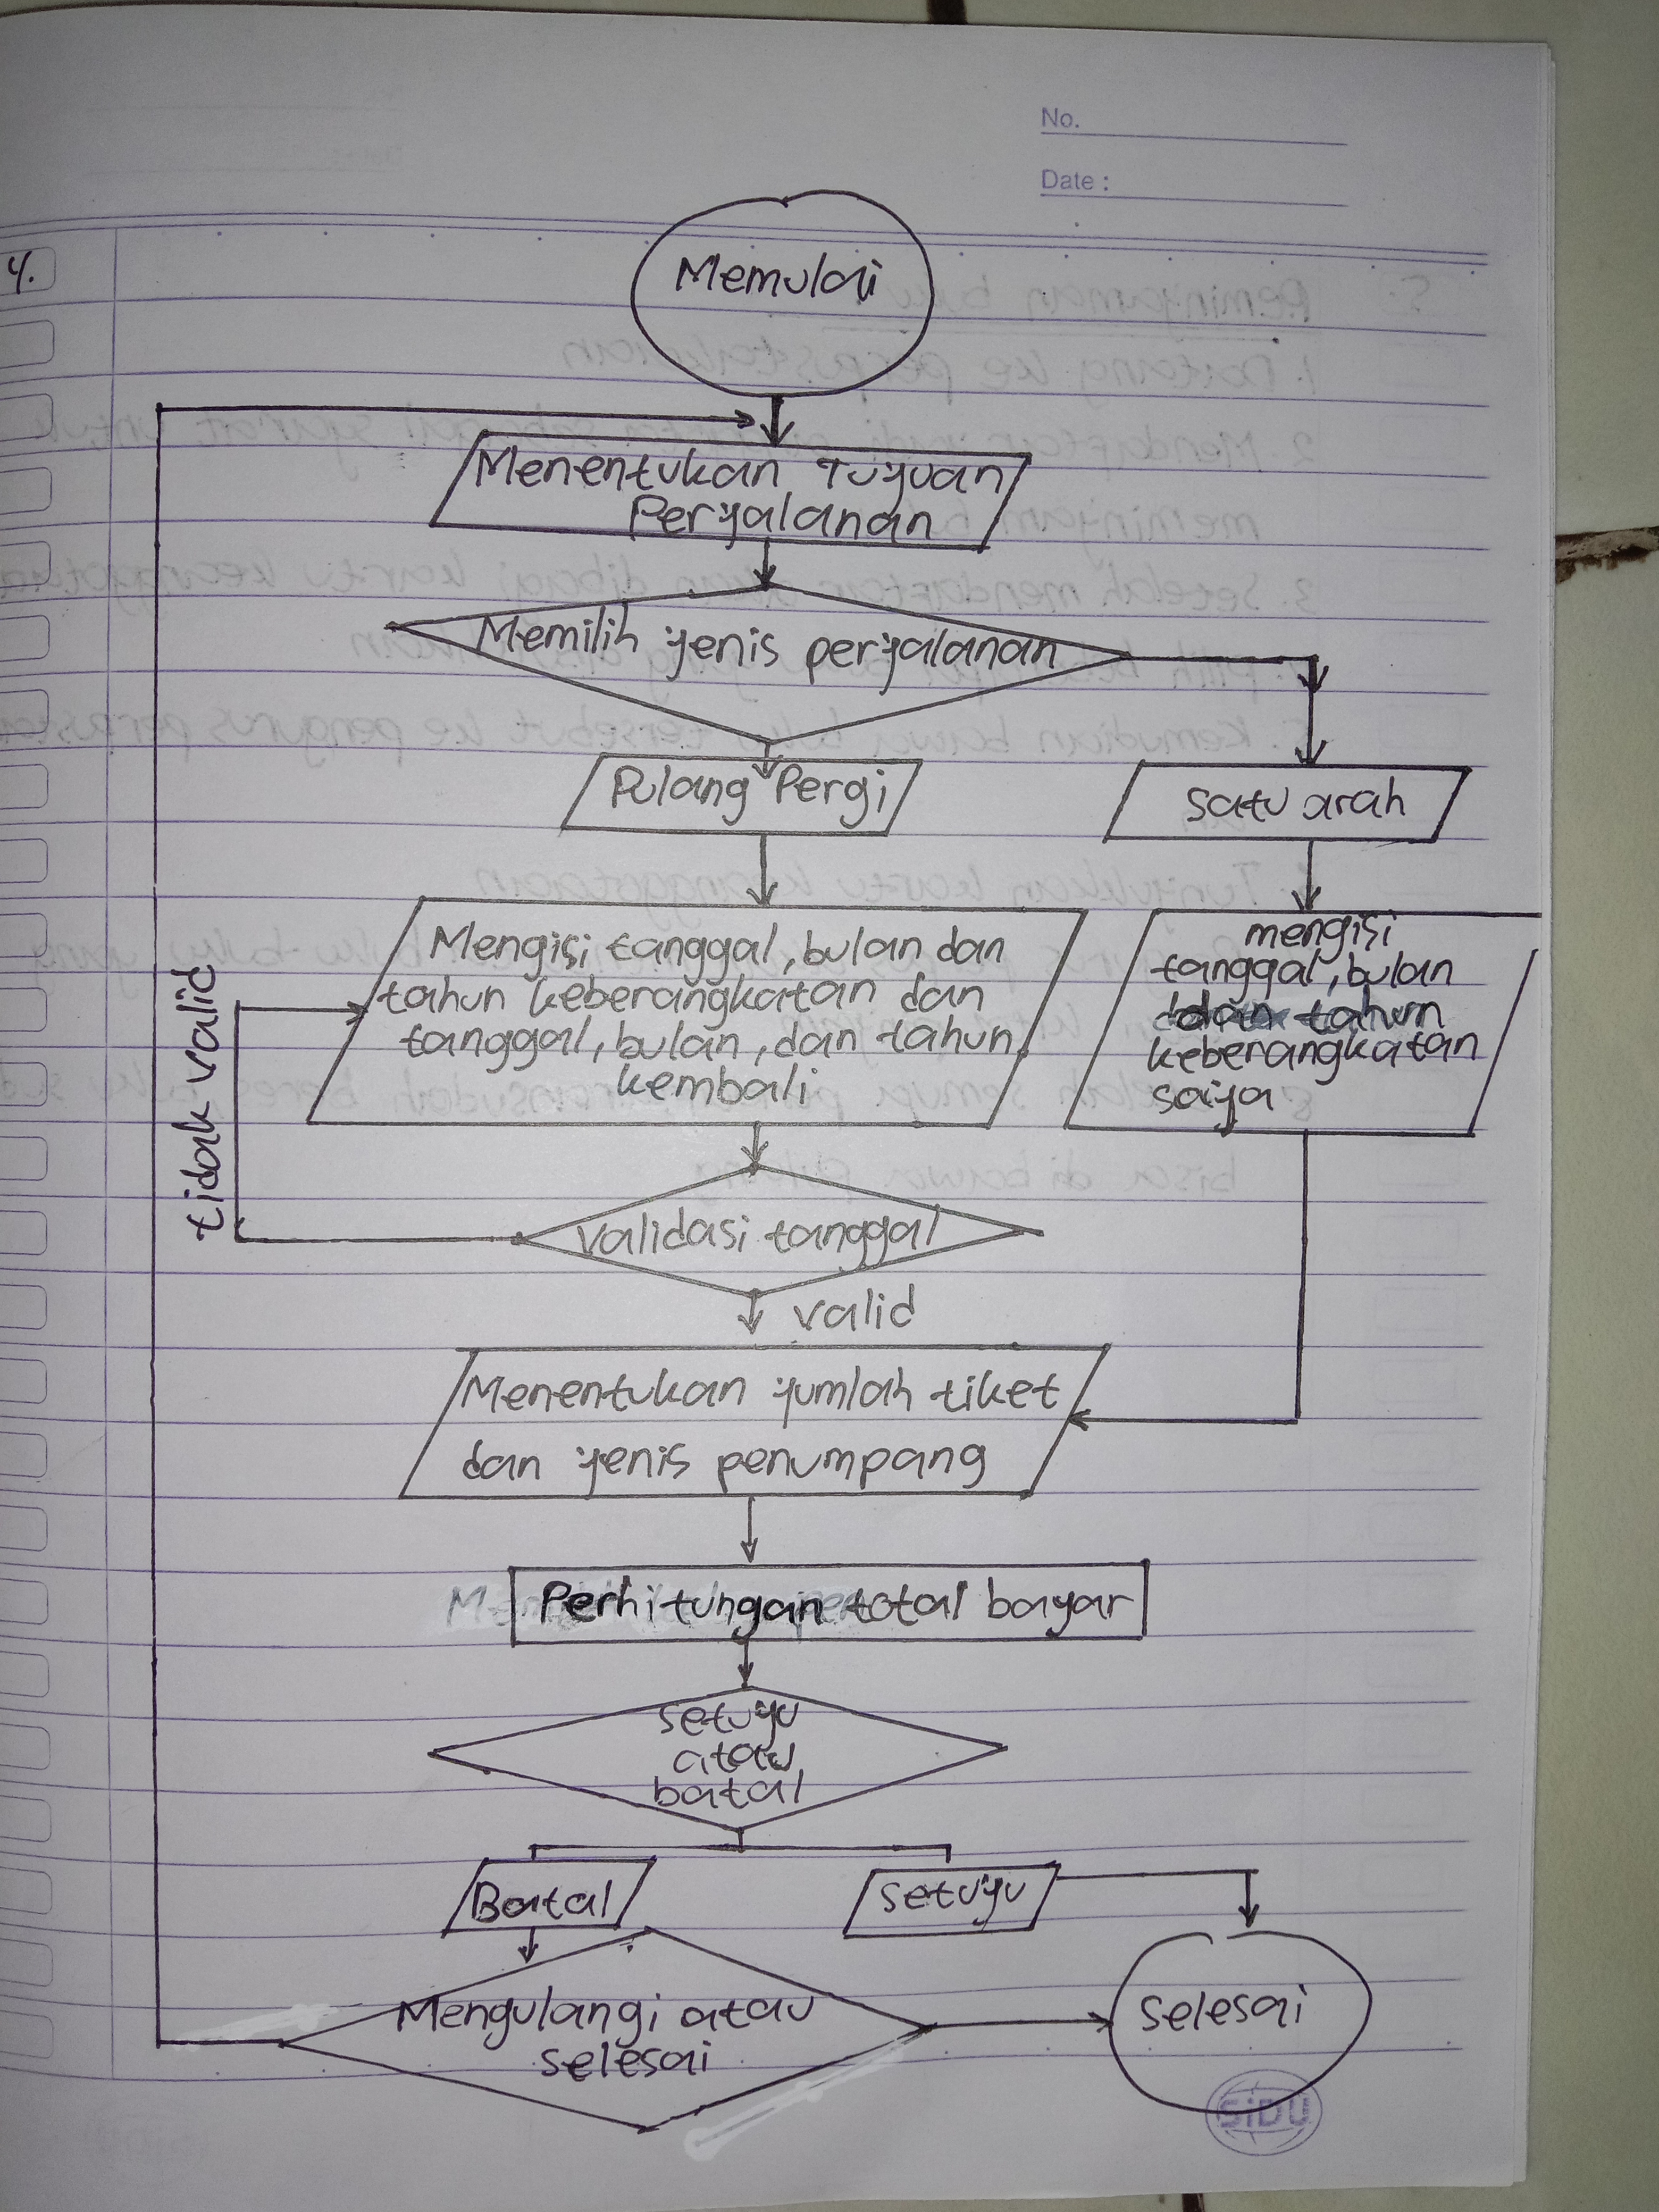 No.
Date :
4.
Memulai
Menentukan Tujuan
Perjalanan
Memilih jenis perjalanan
Pulang Pergi
satu arah
Mengisi tanggal, bulan dan
tahun keberangkatan dan
tanggal, bulan, dan tahun
kembali
mengisi
tanggal, bulan
dan tahun
keberangkatan
saja
tidak valid
validasi tanggal
valid
Menentukan jumlah tiket
dan jenis penumpang
Perhitungan total bayar
setuju
atau
batal
Batal
setuju
Mengulangi atau
selesai
selesai
SiDU